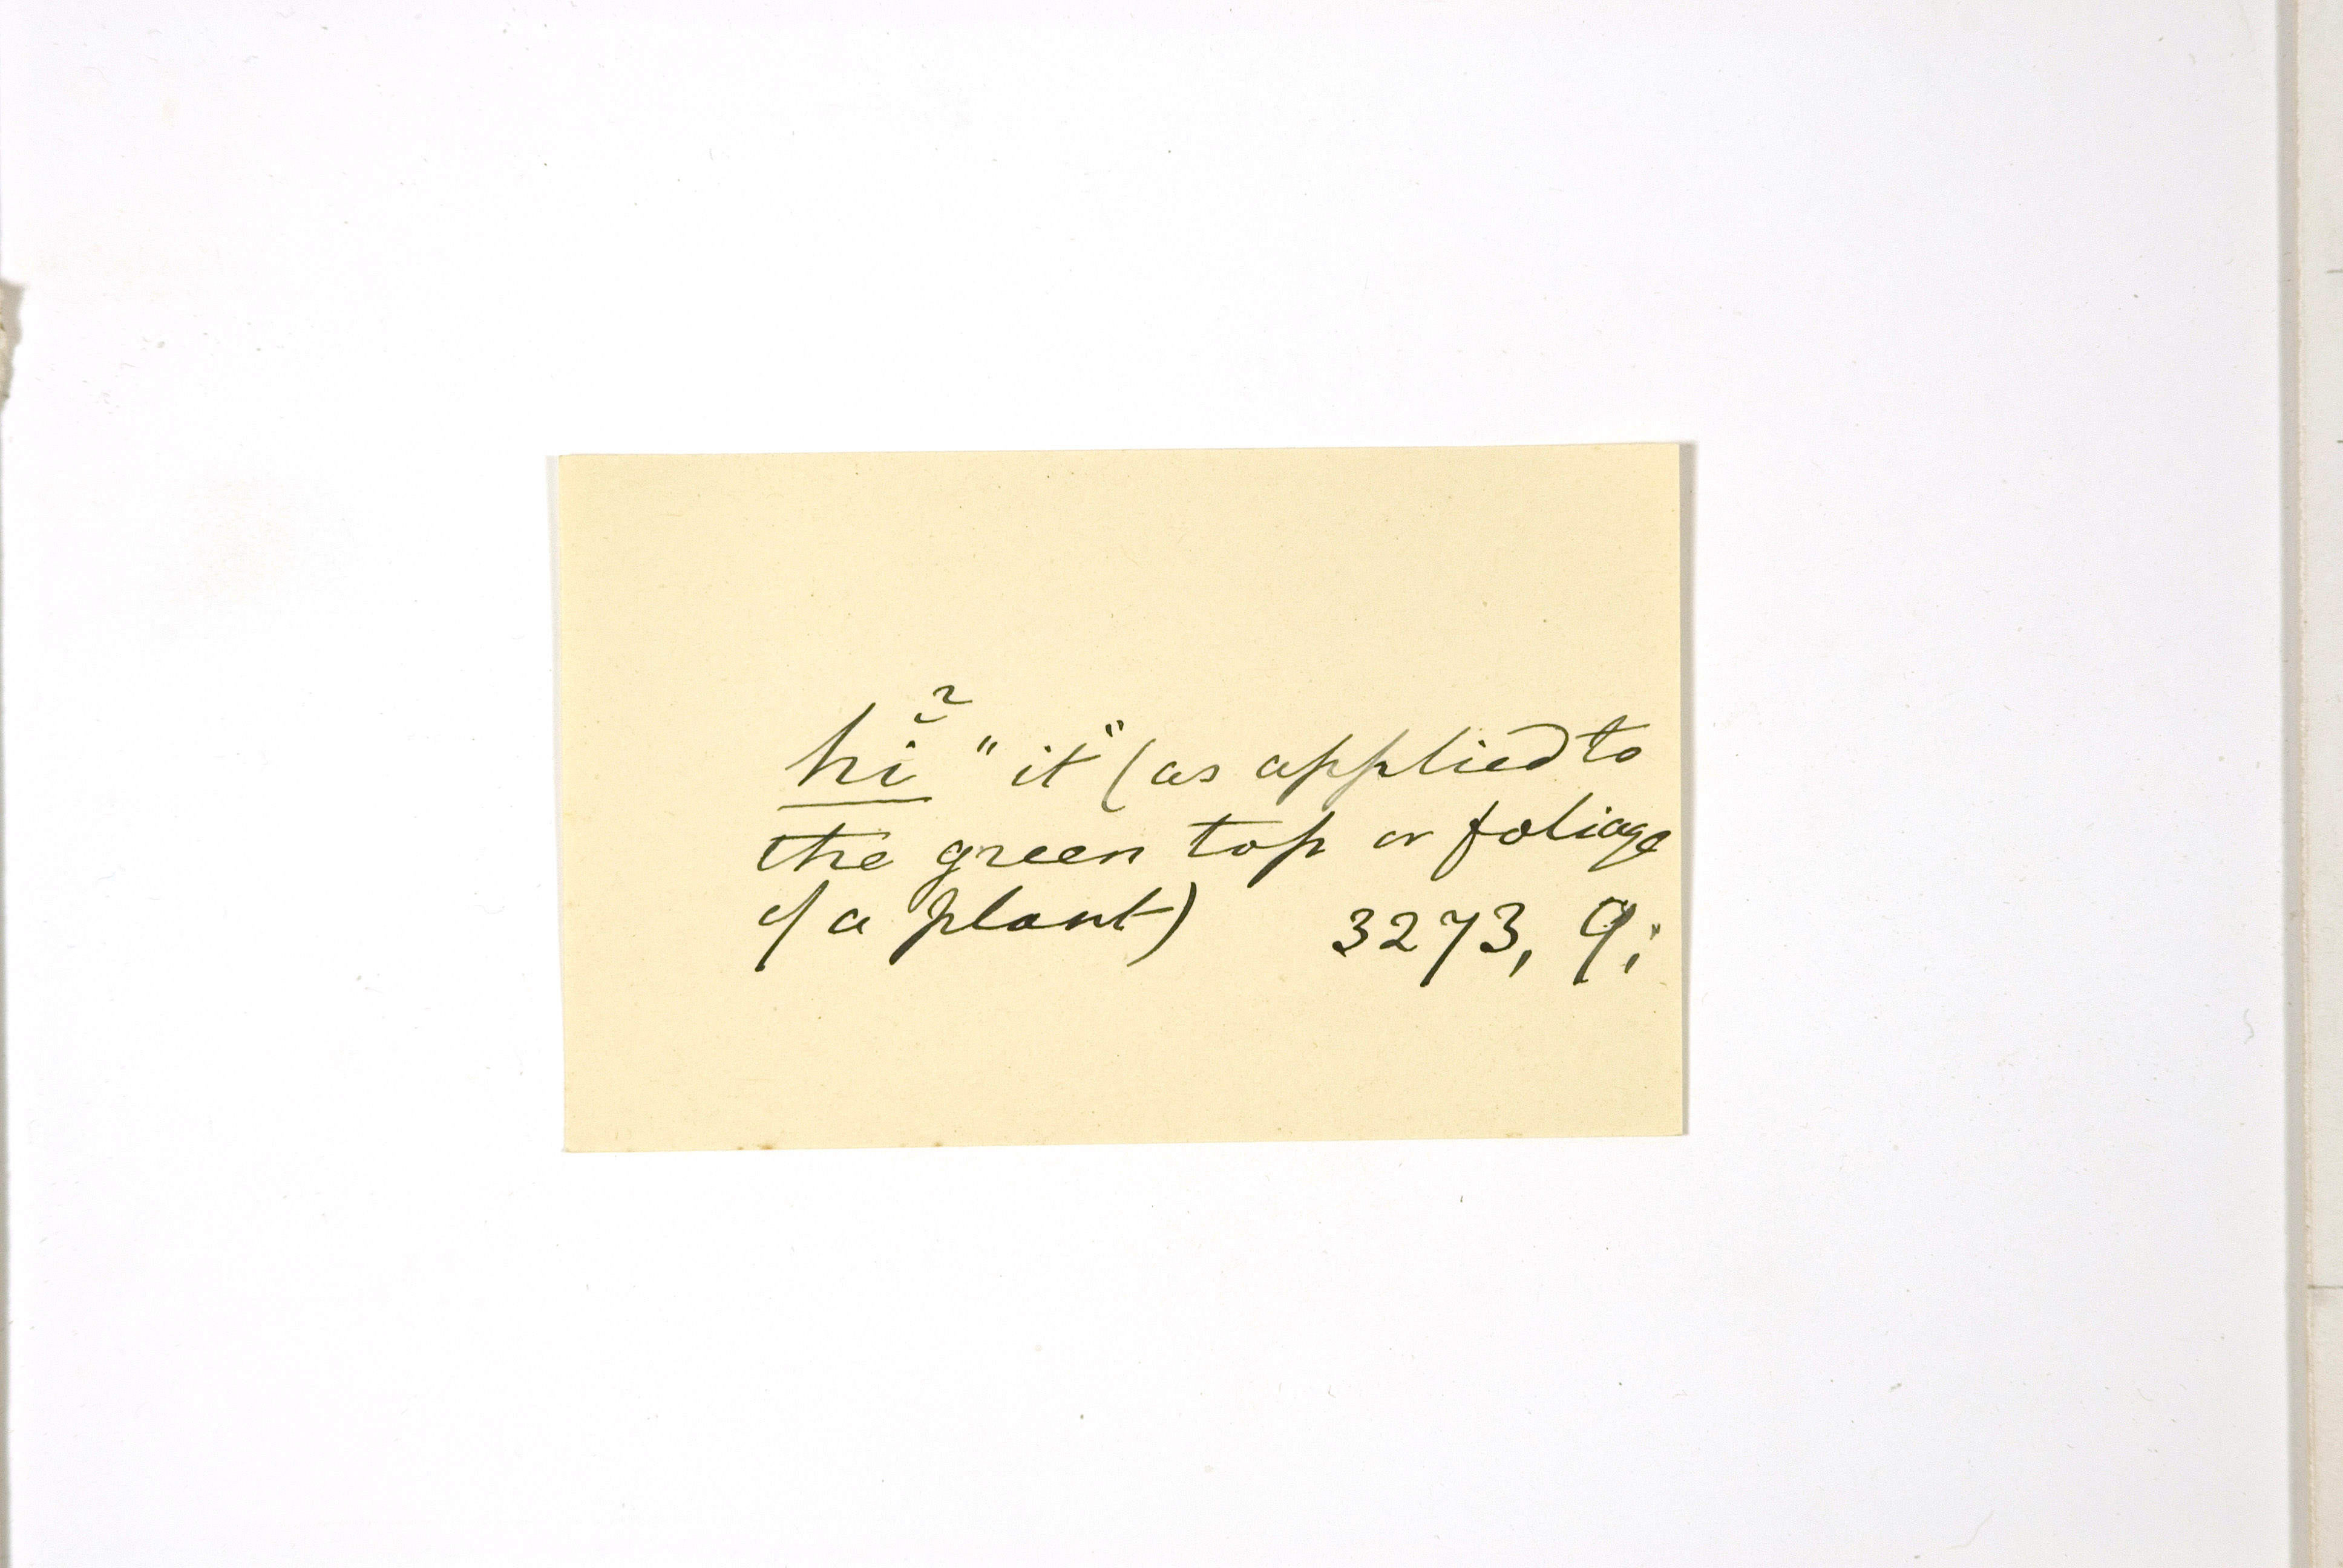 hĭ² " it " (as applied to
the green top or foliage
of a plant) 3273, 9;